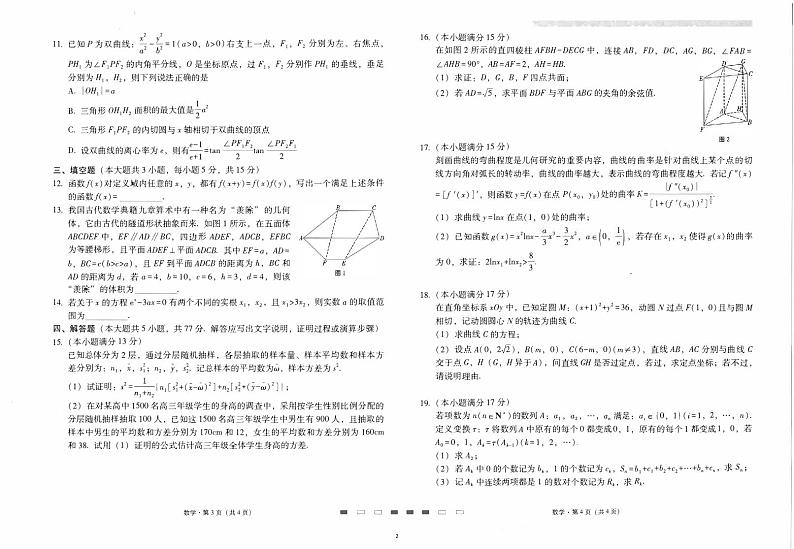 11. 已知P为双曲线: x²/a²-y²/b²=1(a>0, b>0)右支上一点, F₁, F₂分别为左、右焦点,
PH₁为∠F₁PF₂的内角平分线, O是坐标原点, 过F₁, F₂分别作PH₁的垂线, 垂足
分别为H₁, H₂, 则下列说法正确的是
A. |OH₁|=a
B. 三角形OH₁H₂面积的最大值是1/2a²
C. 三角形F₁PF₂的内切圆与x轴相切于双曲线的顶点
D. 设双曲线的离心率为e, 则有(e-1)/(e+1)=tan∠PF₁F₂/2 tan∠PF₂F₁/2
三、填空题(本大题共3小题, 每小题5分, 共15分)
12. 函数f(x)对定义域内任意的x, y, 都有f(x+y)=f(x)f(y), 写出一个满足上述条件
的函数f(x)=________.
13. 我国古代数学典籍九章算术中有一种名为“羡除”的几何
体, 它由古代的隧道形状抽象而来. 如图1所示, 在五面体
ABCDEF中, EF∥AD∥BC, 四边形ADEF, ADCB, EFBC
为等腰梯形, 且平面ADEF⊥平面ADCB. 其中EF=a, AD=
b, BC=c(b>c>a), 且EF到平面ADCB的距离为h, BC和
AD的距离为d, 若a=4, b=10, c=6, h=3, d=4, 则该
“羡除”的体积为________.
B C A D F E
图1
14. 若关于x的方程eˣ-3ax=0有两个不同的实根x₁, x₂, 且x₁>3x₂, 则实数a的取值范
围为________.
四、解答题(本大题共5小题, 共77分. 解答应写出文字说明, 证明过程或演算步骤)
15. (本小题满分13分)
已知总体分为2层, 通过分层随机抽样, 各层抽取的样本量、样本平均数和样本方
差分别为: n₁, x̄, s₁²; n₂, ȳ, s₂². 记总样本的平均数为ω̄, 样本方差为s².
(1) 试证明: s²=1/(n₁+n₂){n₁[s₁²+(x̄-ω̄)²]+n₂[s₂²+(ȳ-ω̄)²]};
(2) 在对某高中1500名高三年级学生的身高的调查中, 采用按学生性别比例分配的
分层随机抽样抽取100人, 已知这1500名高三年级学生中男生有900人, 且抽取的
样本中男生的平均数和方差分别为170cm和12, 女生的平均数和方差分别为160cm
和38. 试用(1)证明的公式估计高三年级全体学生身高的方差.
数学·第3页(共4页)
16. (本小题满分15分)
在如图2所示的直四棱柱AFBH-DECG中, 连接AB, FD, DC, AG, BG, ∠FAB=
∠AHB=90°, AB=AF=2, AH=HB.
(1) 求证: D, G, B, F四点共面;
(2) 若AD=√5, 求平面BDF与平面ABG的夹角的余弦值.
D G E C A H F B
图2
17. (本小题满分15分)
刻画曲线的弯曲程度是几何研究的重要内容, 曲线的曲率是针对曲线上某个点的切
线方向对弧长的转动率, 曲线的曲率越大, 表示曲线的弯曲程度越大. 若记f″(x)
=[f′(x)]′, 则函数y=f(x)在点P(x₀, y₀)处的曲率K=|f″(x₀)|/[1+(f′(x₀))²]^(3/2).
(1) 求曲线y=lnx在点(1, 0)处的曲率;
(2) 已知函数g(x)=x²lnx-a/3x³-3/2x², a∈(0, 1/e), 若存在x₁, x₂使得g(x)的曲率
为0, 求证: 2lnx₁+lnx₂>8/3.
18. (本小题满分17分)
在直角坐标系xOy中, 已知定圆M: (x+1)²+y²=36, 动圆N过点F(1, 0)且与圆M
相切, 记动圆圆心N的轨迹为曲线C.
(1) 求曲线C的方程;
(2) 设点A(0, 2√2), B(m, 0), C(6-m, 0)(m≠3), 直线AB, AC分别与曲线C
交于点G, H(G, H异于A), 问直线GH是否过定点, 若过, 求定点坐标; 若不过,
请说明理由.
19. (本小题满分17分)
若项数为n(n∈N*)的数列A: a₁, a₂, …, aₙ满足: aᵢ∈{0, 1}(i=1, 2, …, n).
定义变换τ: τ将数列A中原有的每个0都变成0, 1, 原有的每个1都变成1, 0, 若
A₀=0, 1, Aₖ=τ(Aₖ₋₁)(k=1, 2, …).
(1) 求A₂;
(2) 若Aₖ中0的个数记为bₖ, 1的个数记为cₖ, Sₙ=b₁+c₁+b₂+c₂+…+bₙ+cₙ, 求Sₙ;
(3) 记Aₖ中连续两项都是1的数对个数记为Rₖ, 求Rₖ.
数学·第4页(共4页)
2